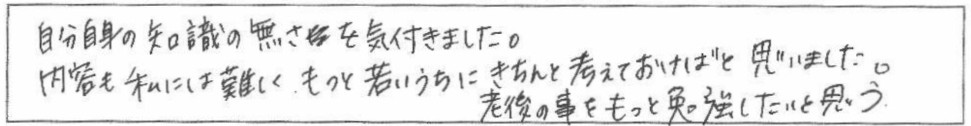 自分自身の知識の無さを気付きました。
内容も私には難しく、もっと若いうちにきちんと考えておけばと思いました。
老後の事をもっと勉強したいと思う。